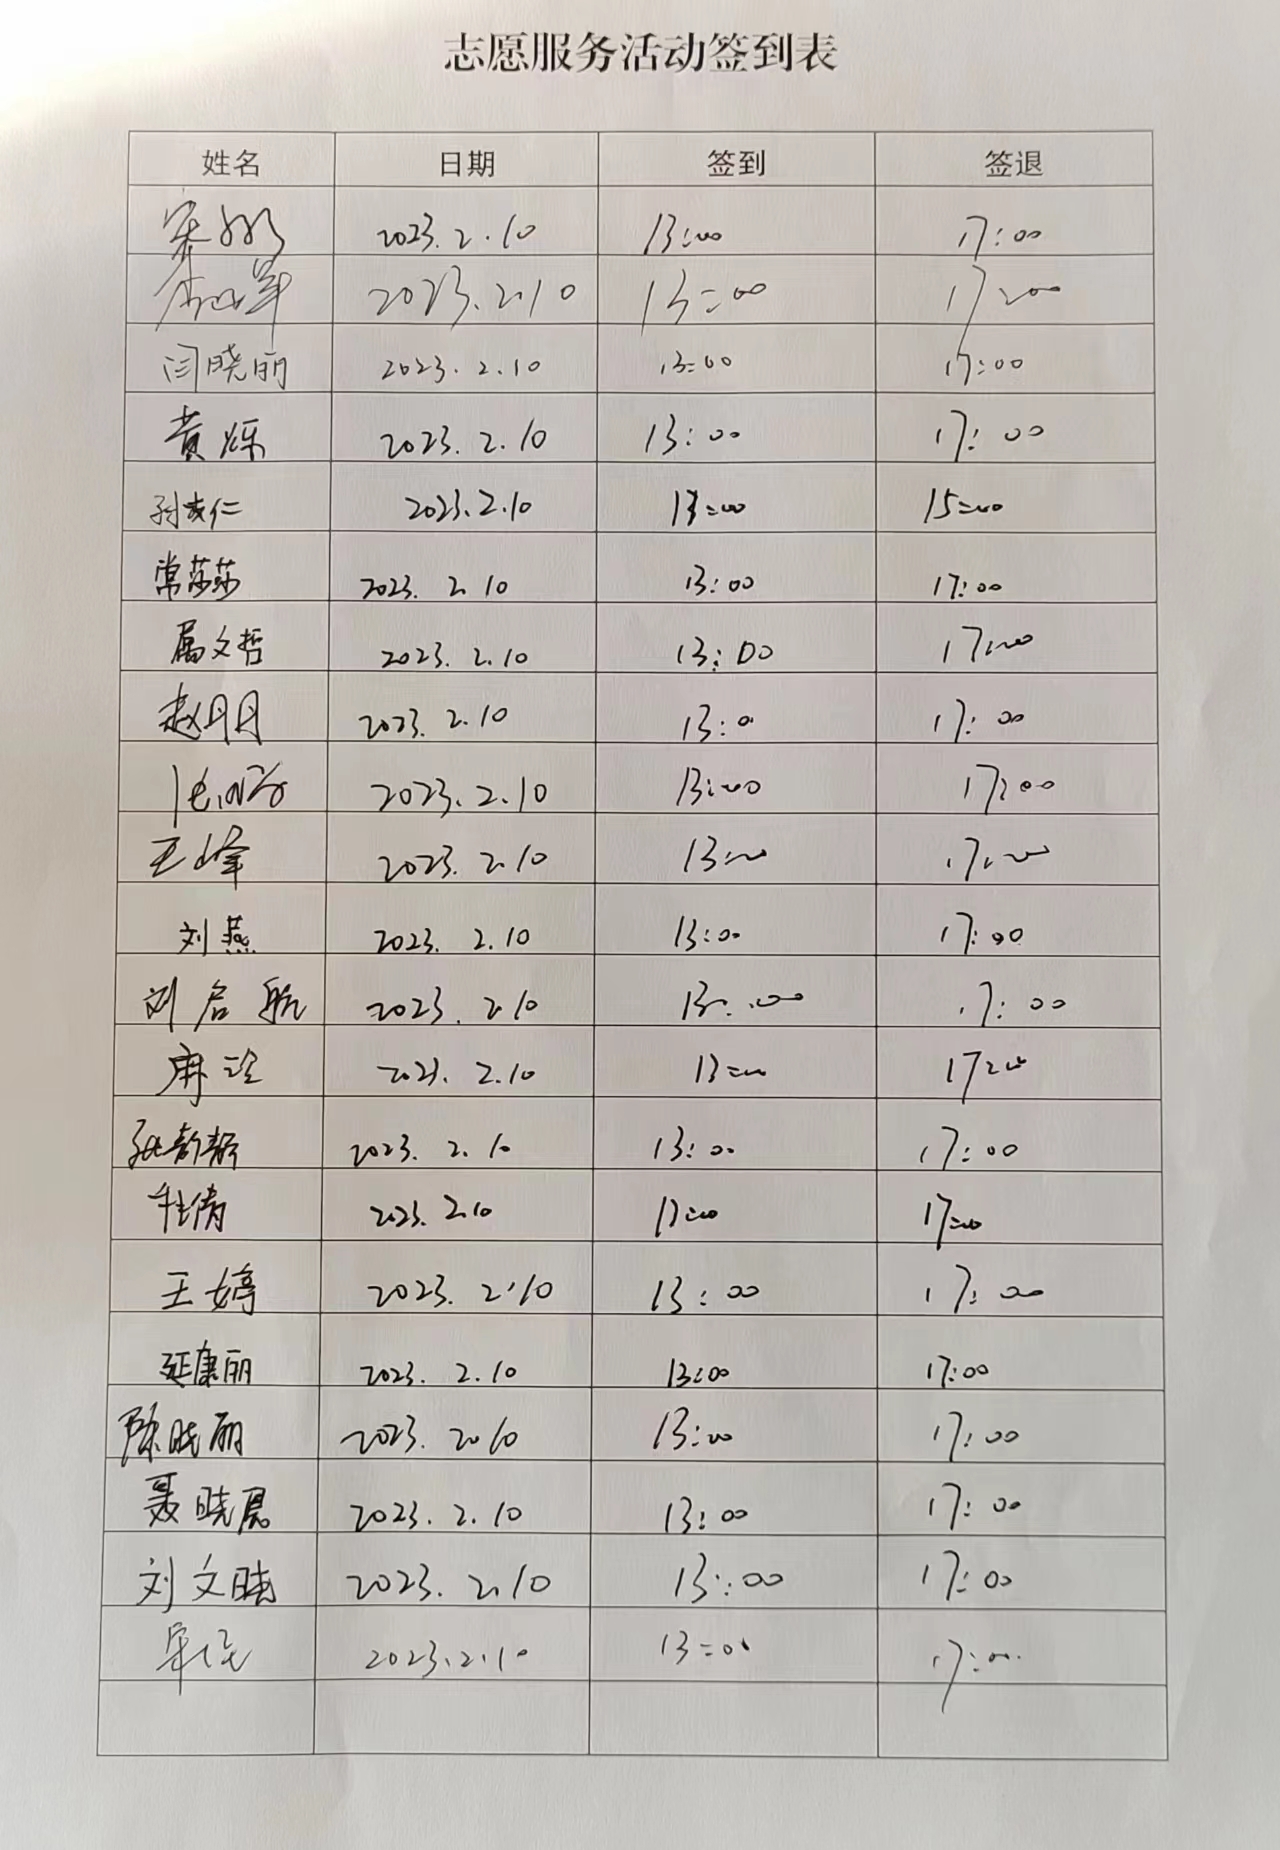 志愿服务活动签到表
姓名 日期 签到 签退
2023.2.10 13:00 17:00
2023.2.10 13:00 17:00
闫晓丽 2023.2.10 13:00 17:00
黄烁 2023.2.10 13:00 17:00
2023.2.10 13:00 15:00
常莎莎 2023.2.10 13:00 17:00
文哲 2023.2.10 13:00 17:00
赵丹丹 2023.2.10 13:0 17:00
2023.2.10 13:00 17:00
王峰 2023.2.10 13:00 17:00
刘燕 2023.2.10 13:00 17:00
刘启航 2023.2.10 13:00 17:00
2023.2.10 13:00 17:00
2023.2.10 13:00 17:00
杜倩 2023.2.10 13:00 17:00
王婷 2023.2.10 13:00 17:00
延康丽 2023.2.10 13:00 17:00
陈晓丽 2023.2.10 13:00 17:00
聂晓晨 2023.2.10 13:00 17:00
刘文晓 2023.2.10 13:00 17:00
2023.2.10 13:00 17:00